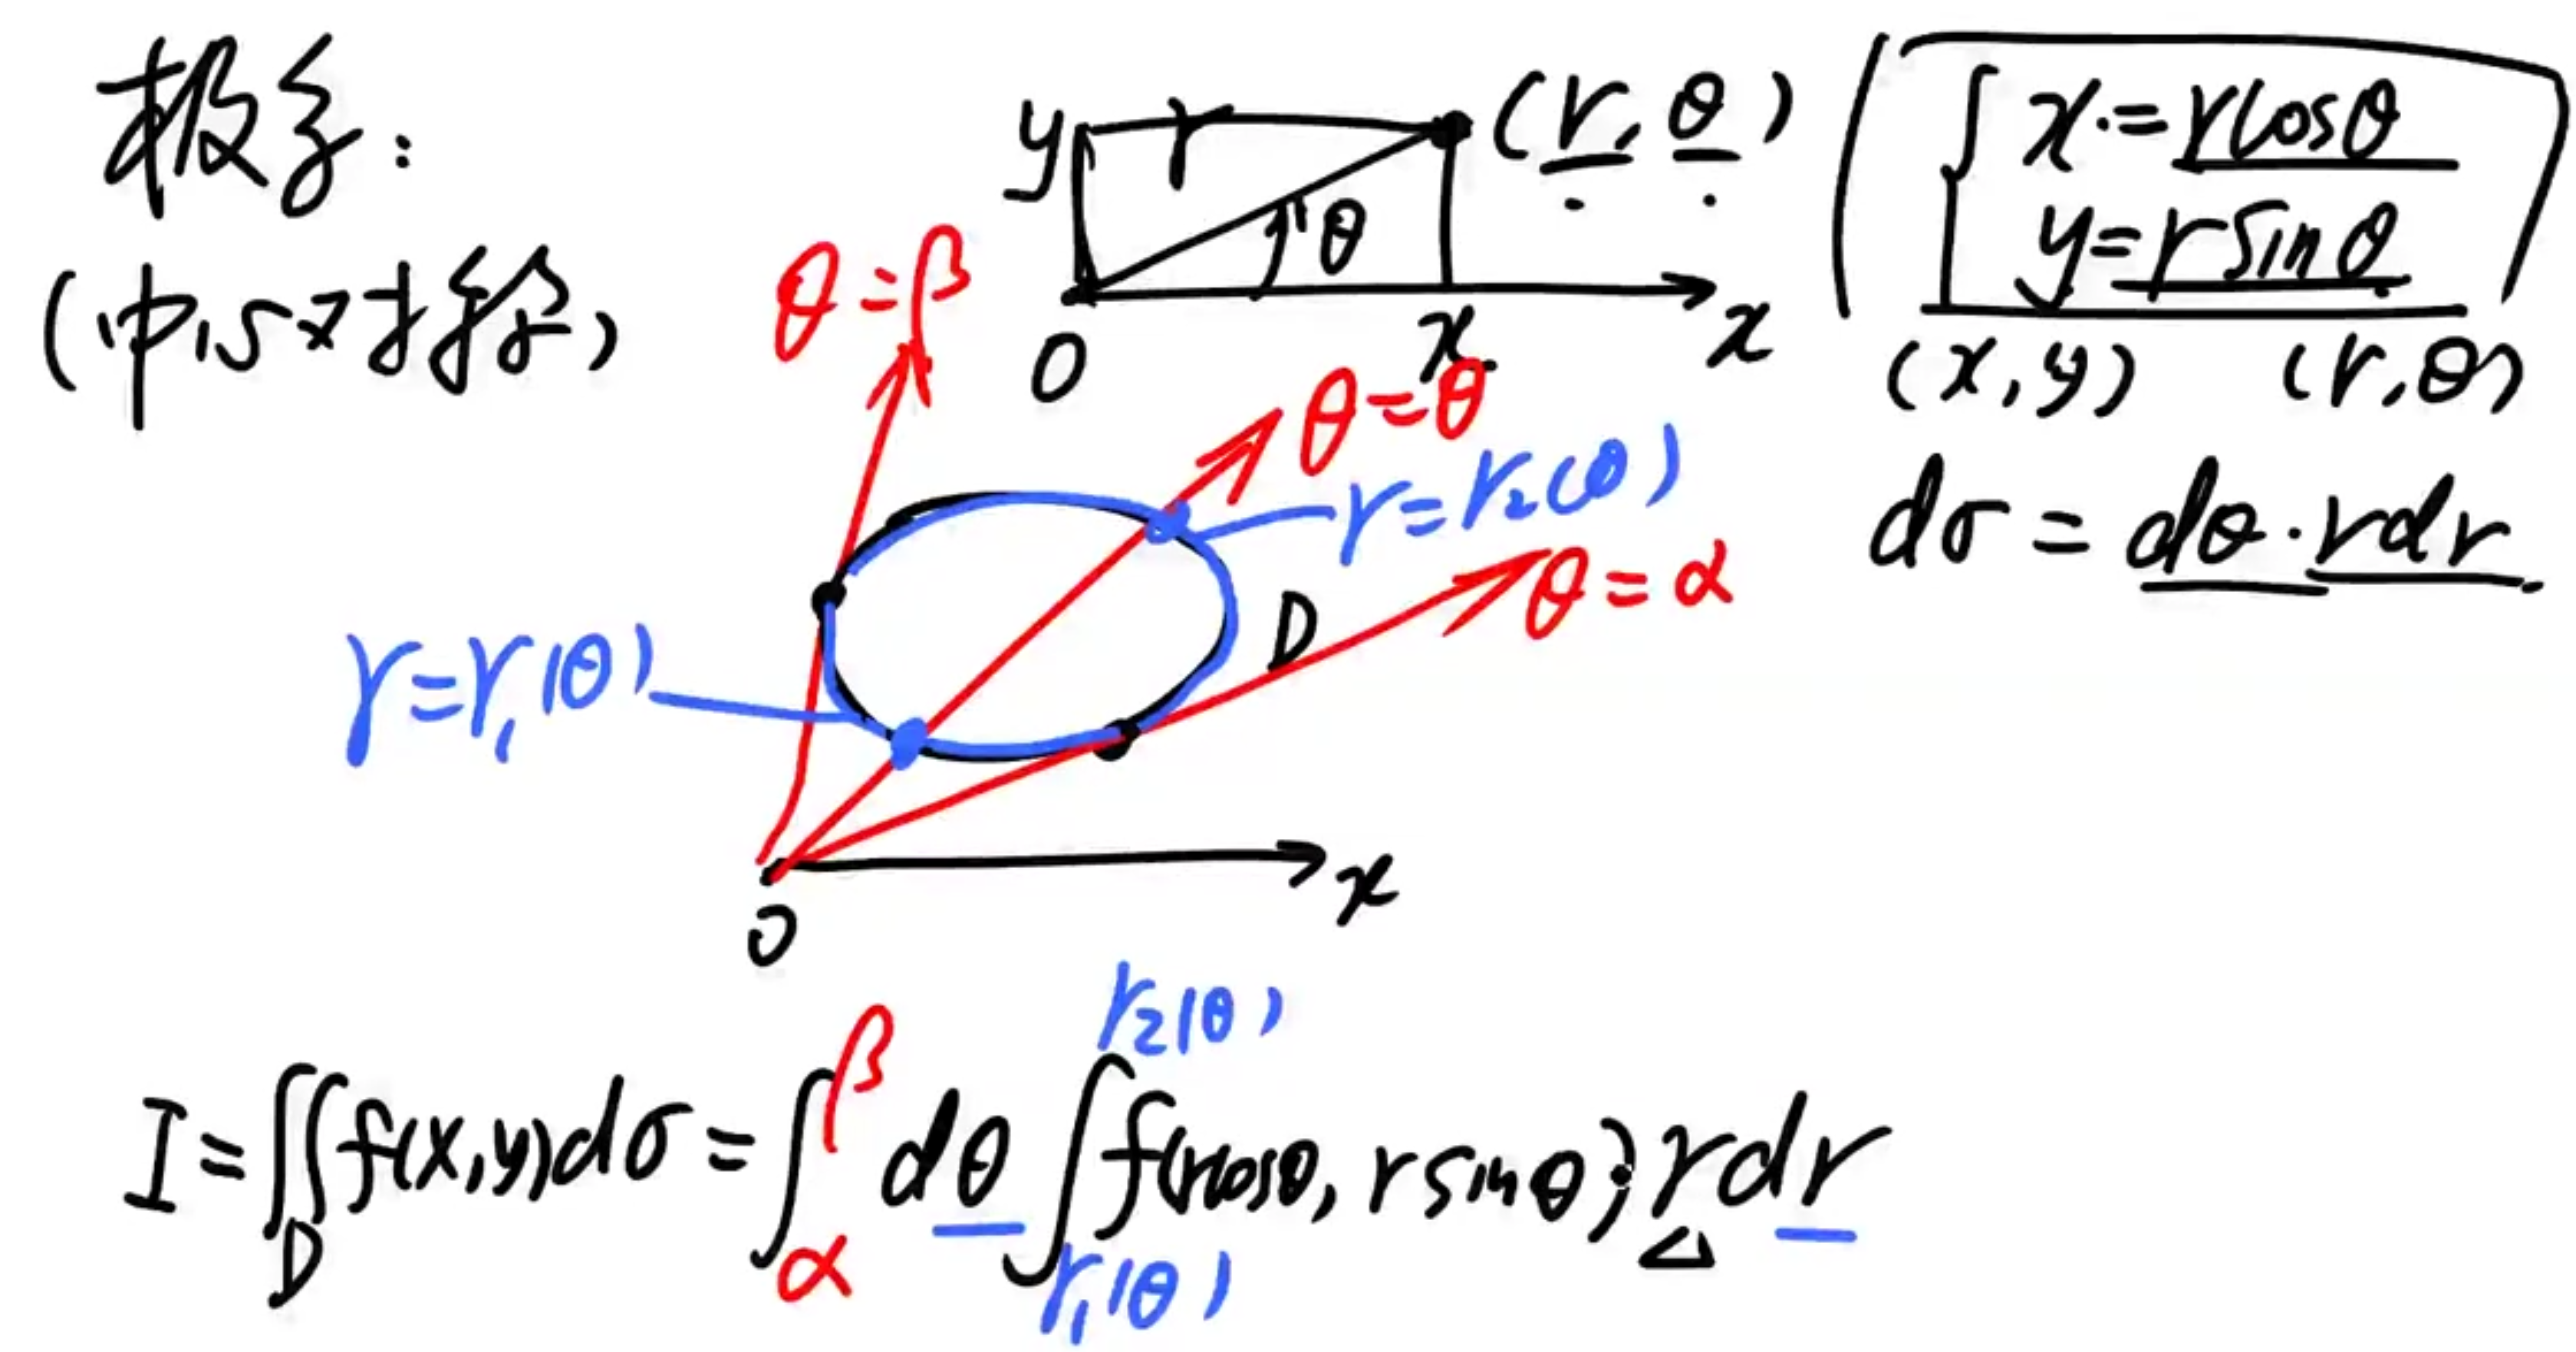 极系:
(中心对称)
y r (r, θ)
θ
0 x x
{ x = rcosθ
y = rsinθ
(x, y) (r, θ)
dσ = dθ · rdr
θ = β
θ = θ
r = r₂(θ)
θ = α
D
r = r₁(θ)
0 x
I = ∬_D f(x, y)dσ = ∫_α^β dθ ∫_{r₁(θ)}^{r₂(θ)} f(rcosθ, rsinθ) · rdr